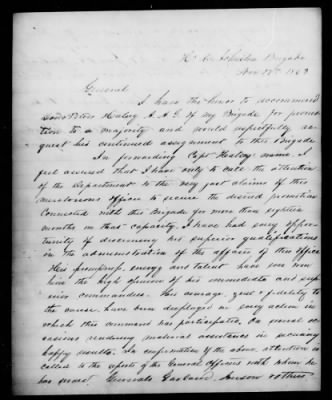 Hd Qr Johnston Brigade
Nov 1863
General
I have the honor to recommend
Halsey A. A. G. of my Brigade for promo-
tion to a majority and would respectfully re-
quest his continued assignment to this Brigade
In forwarding Capt Halseys name I
feel assured that I have only to call the attention
of the Department to the very just claims of this
meritorious officer to secure the desired promotion
Connected with this Brigade for more than eighteen
months in that capacity, I have had every oppor-
tunity of discerning his superior qualifications
in the administration of the affairs of this office
His promptness, energy and talent have soon won
him the high opinion of his immediate and sup-
erior commanders. His courage, zeal & fidelity to
the cause, have been displayed in every action in
which this command has participated, on several oc-
casions rendering material assistance in securing
happy results. In confirmation of the above, attention is
called to the reports of the General Officers with whom he
has served. Generals Garland, Iverson & others